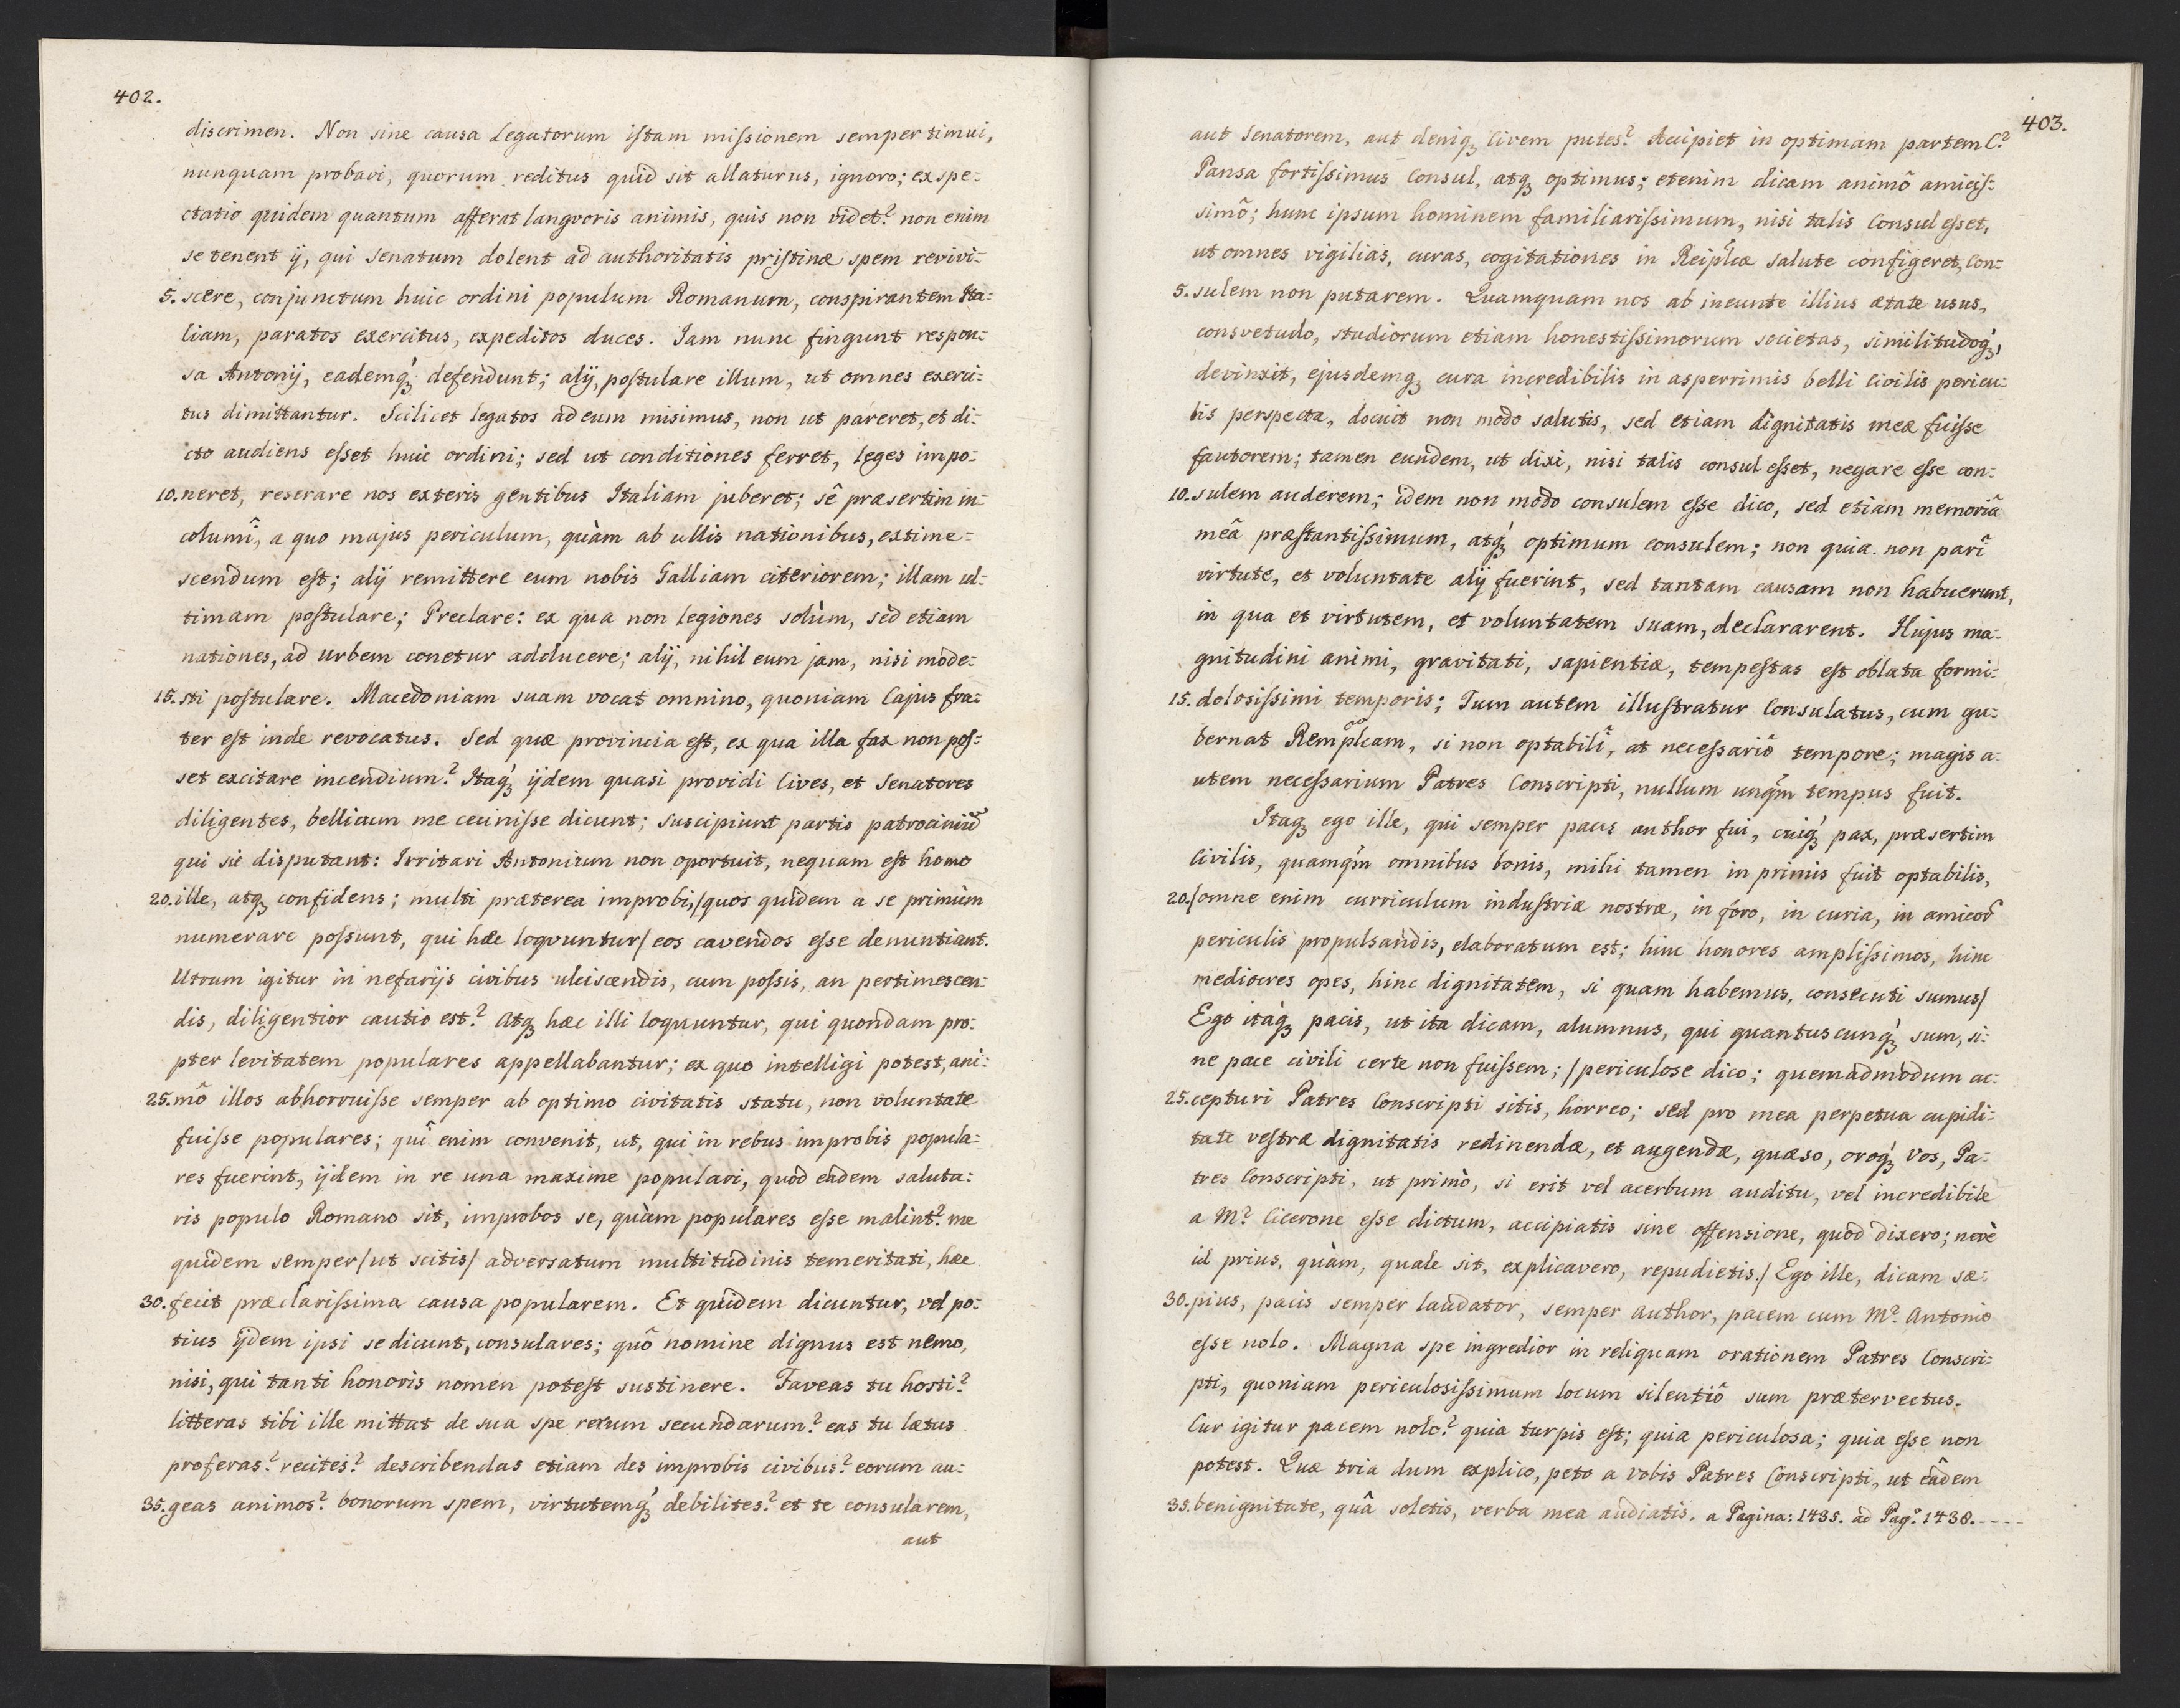 402.
discrimen. Non sine causa Legatorum iſtam miſsionem semper timui,
nunquam probavi, quorum reditus quid sit allaturus, ignoro; exspe=
ctatio quidem quantum afferat langvoris animis, quis non videt? non enim
se tenent ij, qui Senatum dolent ad authoritatis priſtinæ spem revivi=
5. scere, conjunctum huic ordini populum Romanum, conspirantem Ita=
liam, paratos exercitus, expeditos duces. Jam nunc fingunt respon=
sa Antonij, eademq́ȝ defendunt; alij, poſtulare illum, ut omnes exerci=
tus dimittantur. Scilicet legatos ad eum misimus, non ut pareret, et di=
cto audiens eſset huic ordini; sed ut conditiones ferret, leges impo=
10. neret, reserare nos exteris gentibus Italiam juberet; sê præsertim in=
columî, a quo majus periculum, quàm ab ullis nationibus, extime=
scendum eſt; alij remittere eum nobis Galliam citeriorem; illam ul=
timam poſtulare; Preclare: ex qua non legiones solùm, sed etiam
nationes, ad Urbem conetur adducere; alij, nihil eum jam, nisi mode=
15. sti poſtulare. Macedoniam suam vocat omnino, quoniam Cajus fra=
ter eſt inde revocatus. Sed quæ provincia eſt, ex qua illa fax non poſ=
set excitare incendium? Itaq́ȝ ijdem quasi providi Cives, et Senatores
diligentes, bellicum me ceciniſse dicunt; suscipiunt partis patrociniũ
qui sic disputant: Irritari Antonium non oportuit, nequam eſt homo
20. ille, atqȝ confidens; multi præterea improbi, /quos quidem a se primùm
numerare poſsunt, qui hæc loqvuntur/ eos cavendos eſse denuntiant.
Utrum igitur in nefarijs civibus ulciscendis, cum poſsis, an pertimescen=
dis, diligentior cautio est? Atqȝ hæc illi loquuntur, qui quondam pro=
pter levitatem populares appellabantur; ex quo intelligi potest, ani=
25. mô illos abhorruiſse semper ab optimo civitatis statu, non voluntate
fuiſse populares; quî enim convenit, ut, qui in rebus improbis popula=
res fuerint, ijdem in re una maxime populari, quod eadem saluta=
ris populo Romano sit, improbos se, quàm populares esse malint? me
quidem semper /ut scitis/ adversatum multitudinis temeritati, hæc
30. fecit præclariſsima causa popularem. Et quidem dicuntur, vel po=
tius ijdem ipsi se dicunt, consulares; quô nomine dignus est nemo,
nisi, qui tanti honoris nomen poteſt sustinere. Faveas tu hosti?
litteras tibi ille mittat de sua spe rerum secundarum? eas tu lætus
proferas? recites? describendas etiam des improbis civibus? eorum au=
35. geas animos? bonorum spem, virtutemq́ȝ debilites? et te consularem,
aut
403.
aut Senatorem, aut deniqȝ Civem putes? Accipiet in optimam partem C?
Pansa fortiſsimus Consul, atqȝ optimus; etenim dicam animô amiciſ=
simô; hunc ipsum hominem familiariſsimum, nisi talis Consul eſset,
ut omnes vigilias, curas, cogitationes in Reiplcæ salute configeret, Con=
5. sulem non putarem. Quamquam nos ab ineunte illius ætate usus,
consvetudo, studiorum etiam honestiſsimorum societas, similitudoq́ȝ,
devinxit, ejusdemqȝ cura incredibilis in asperrimis belli Civilis pericu=
lis perspecta, docuit non modo salutis, sed etiam dignitatis meæ fuiſse
fautorem; tamen eundem, ut dixi, nisi talis consul eſset, negare eſse con=
10. sulem auderem; idem non modo consulem eſse dico, sed etiam memoriâ
meâ præſtantiſsimum, atq́ȝ optimum consulem; non quia non parî
virtute, et voluntate alij fuerint, sed tantam causam non habuerunt,
in qua et virtutem, et voluntatem suam, declararent. Hujus ma=
gnitudini animi, gravitati, sapientiæ, tempeſtas eſt oblata formi=
15. dolosiſsimi temporis; Tum autem illuſtratur Consulatus, cum gu=
bernat Remplcam, si non optabilî, at neceſsariô tempore; magis a=
utem neceſsarium Patres Conscripti, nullum unq̃m tempus fuit.
Itaqȝ ego ille, qui semper pacis author fui, cuiq́ȝ pax, præsertim
Civilis, quamq̃m omnibus bonis, mihi tamen in primis fuit optabilis,
20. /omne enim curriculum induſtriæ nostræ, in foro, in curia, in amicor̃
periculis propulsandis, elaboratum est; hinc honores ampliſsimos, hinc
mediocres opes, hinc dignitatem, si quam habemus, consecuti sumus/
Ego itáqȝ pacis, ut ita dicam, alumnus, qui quantuscunq́ȝ sum, si=
ne pace civili certe non fuiſsem; /periculose dico; quemadmodum ac=
25. cepturi Patres Conscripti sitis, horreo; sed pro mea perpetua cupidi=
tate veſtræ dignitatis redinendæ, et augendæ, quæso, oroq́ȝ Vos, Pa=
tres Conscripti, ut primò, si erit vel acerbum auditu, vel incredibile
a M? Cicerone esse dictum, accipiatis sine offensione, quod dixero; nevè
id prius, quàm, quale sit, explicavero, repudietis./ Ego ille, dicam sæ=
30. pius, pacis semper laudator, semper author, pacem cum M? Antonio
eſse nolo. Magna spe ingredior in reliquam orationem Patres Conscri=
pti, quoniam periculosiſsimum locum silentiô sum prætervectus.
Cur igitur pacem nolo? quia turpis eſt; quia periculosa; quia eſse non
potest. Quæ tria dum explico, peto a vobis Patres Conscripti, ut eâdem
35. benignitate, quâ soletis, verba mea audiatis. a Pagina: 1435. ad Pag: 1438.----